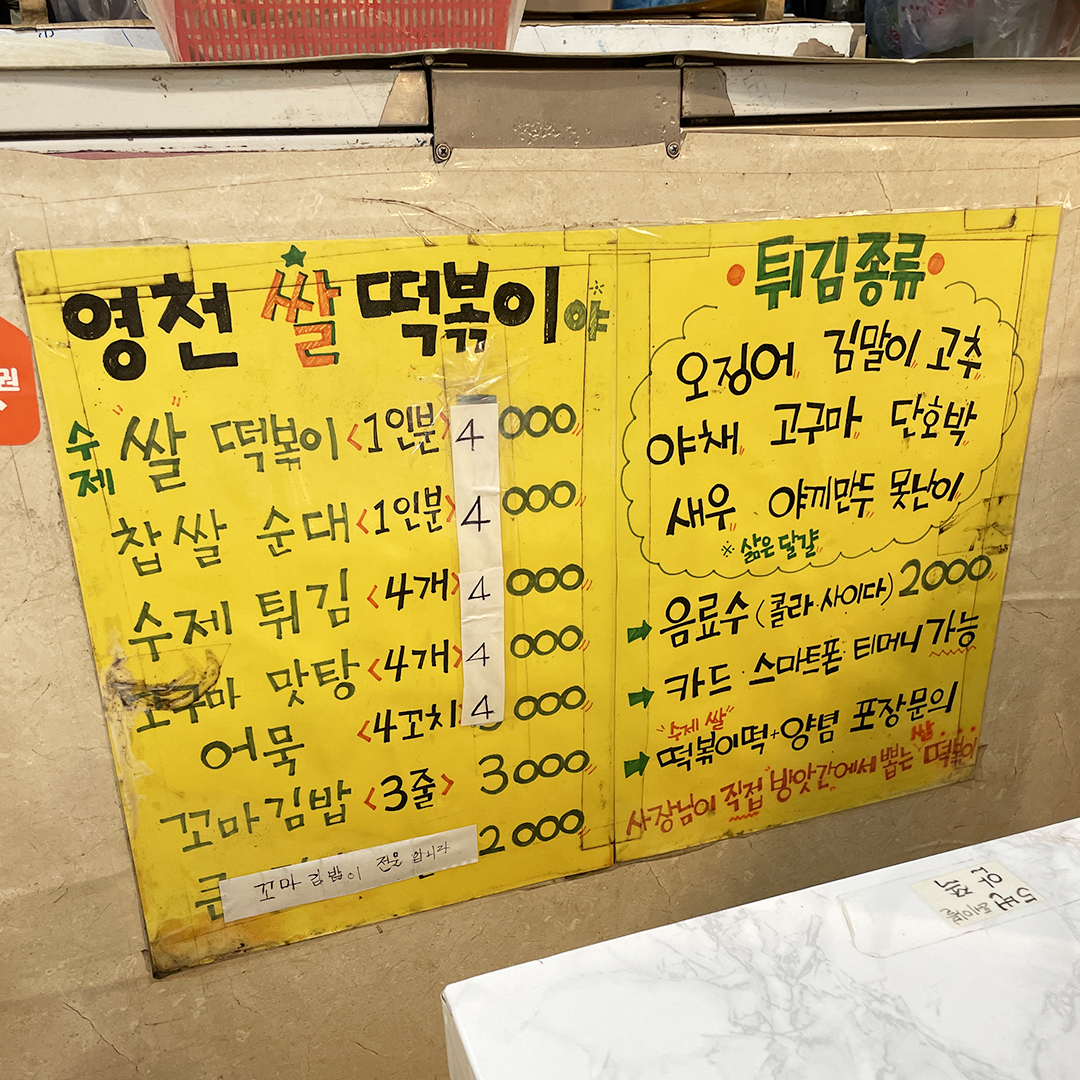 영천 쌀 떡볶이 야
수제 쌀 떡볶이 <1인분> 4000
찹쌀 순대 <1인분> 4000
수제 튀김 <4개> 4000
고구마 맛탕 <4개> 4000
어묵 <4꼬치> 4000
꼬마김밥 <3줄> 3000
큰 2000
꼬마 김밥이 전문 입니다
튀김종류
오징어 김말이 고추
야채 고구마 단호박
새우 야끼만두 못난이
※ 삶은 달걀
음료수 (콜라·사이다) 2000
카드·스마트폰·티머니 가능
"수제 쌀"
떡볶이떡+양념 포장문의
사장님이 직접 방앗간에서 뽑는 쌀 떡볶이
5번 테이블
안쪽
권